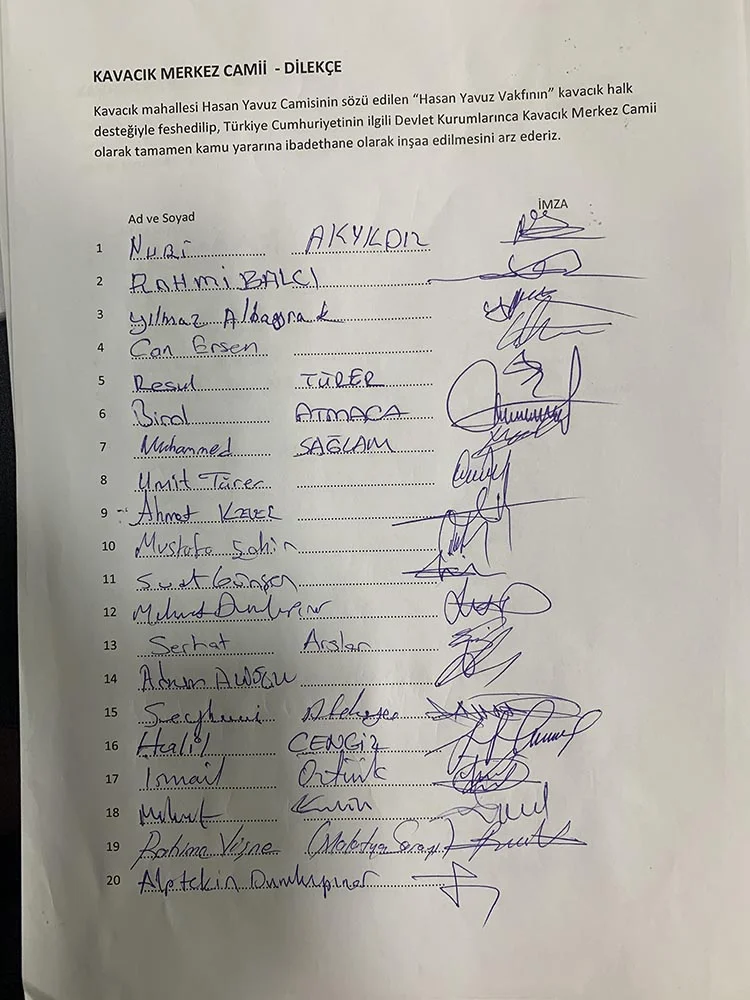 KAVACIK MERKEZ CAMİİ - DİLEKÇE
Kavacık mahallesi Hasan Yavuz Camisinin sözü edilen “Hasan Yavuz Vakfının” kavacık halk
desteğiyle feshedilip, Türkiye Cumhuriyetinin ilgili Devlet Kurumlarınca Kavacık Merkez Camii
olarak tamamen kamu yararına ibadethane olarak inşaa edilmesini arz ederiz.
Ad ve Soyad İMZA
1 Nuri AKYILDIZ
2 RAHMİ BALCI
3 Yılmaz Albayrak
4 Can Ersen
5 Resul TÜRER
6 Birol ATMACA
7 Muhammed SAĞLAM
8 Ümit Türer
9 Ahmet
10 Mustafa Şahin
11 Suat
12 Mehmet Dumlupınar
13 Serhat Arslan
14 Adnan
15
16 Halil CENGİZ
17 İsmail Öztürk
18 Mehmet
19 Rahime Vişne (Malatya Sarayı)
20 Alptekin Dumlupınar